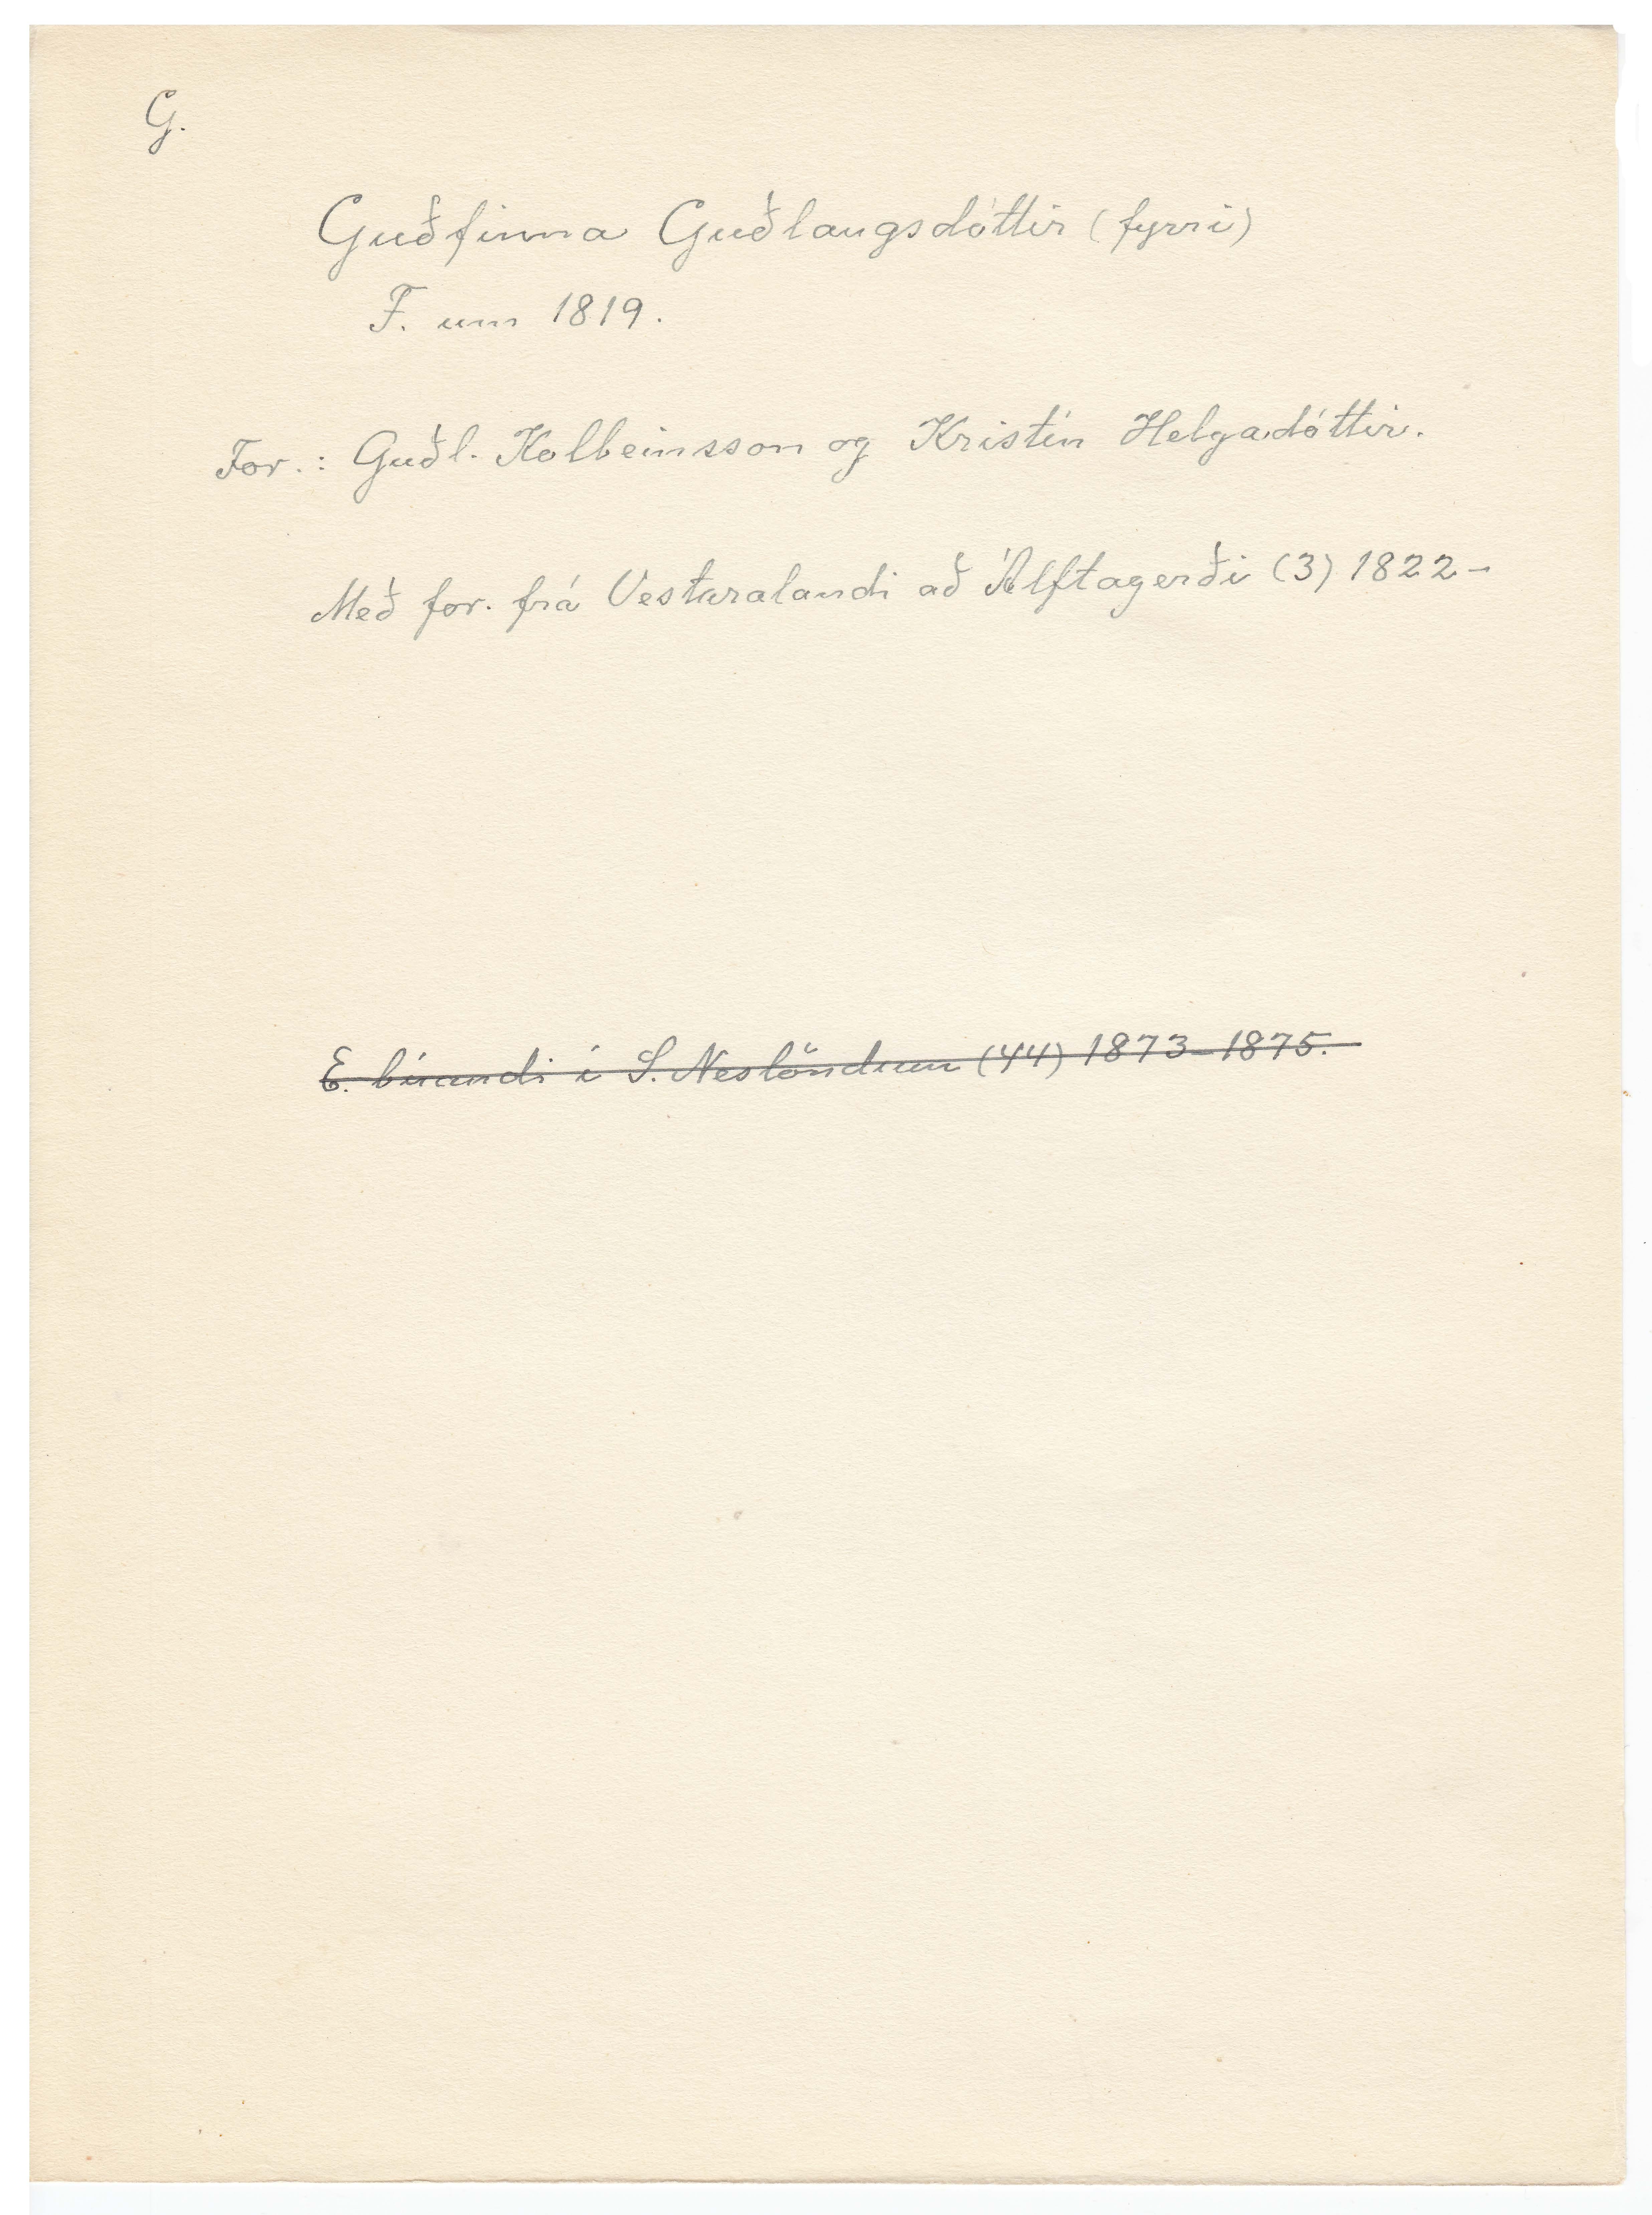 G.
Guðfinna Guðlaugsdóttir (fyrri)
F. um 1819.
For.: Guðl. Kolbeinsson og Kristín Helgadóttir.
Með for. frá Vestaralandi að Álftagerði (3) 1822-
E. búandi í S. Neslöndum (44) 1873-1875.